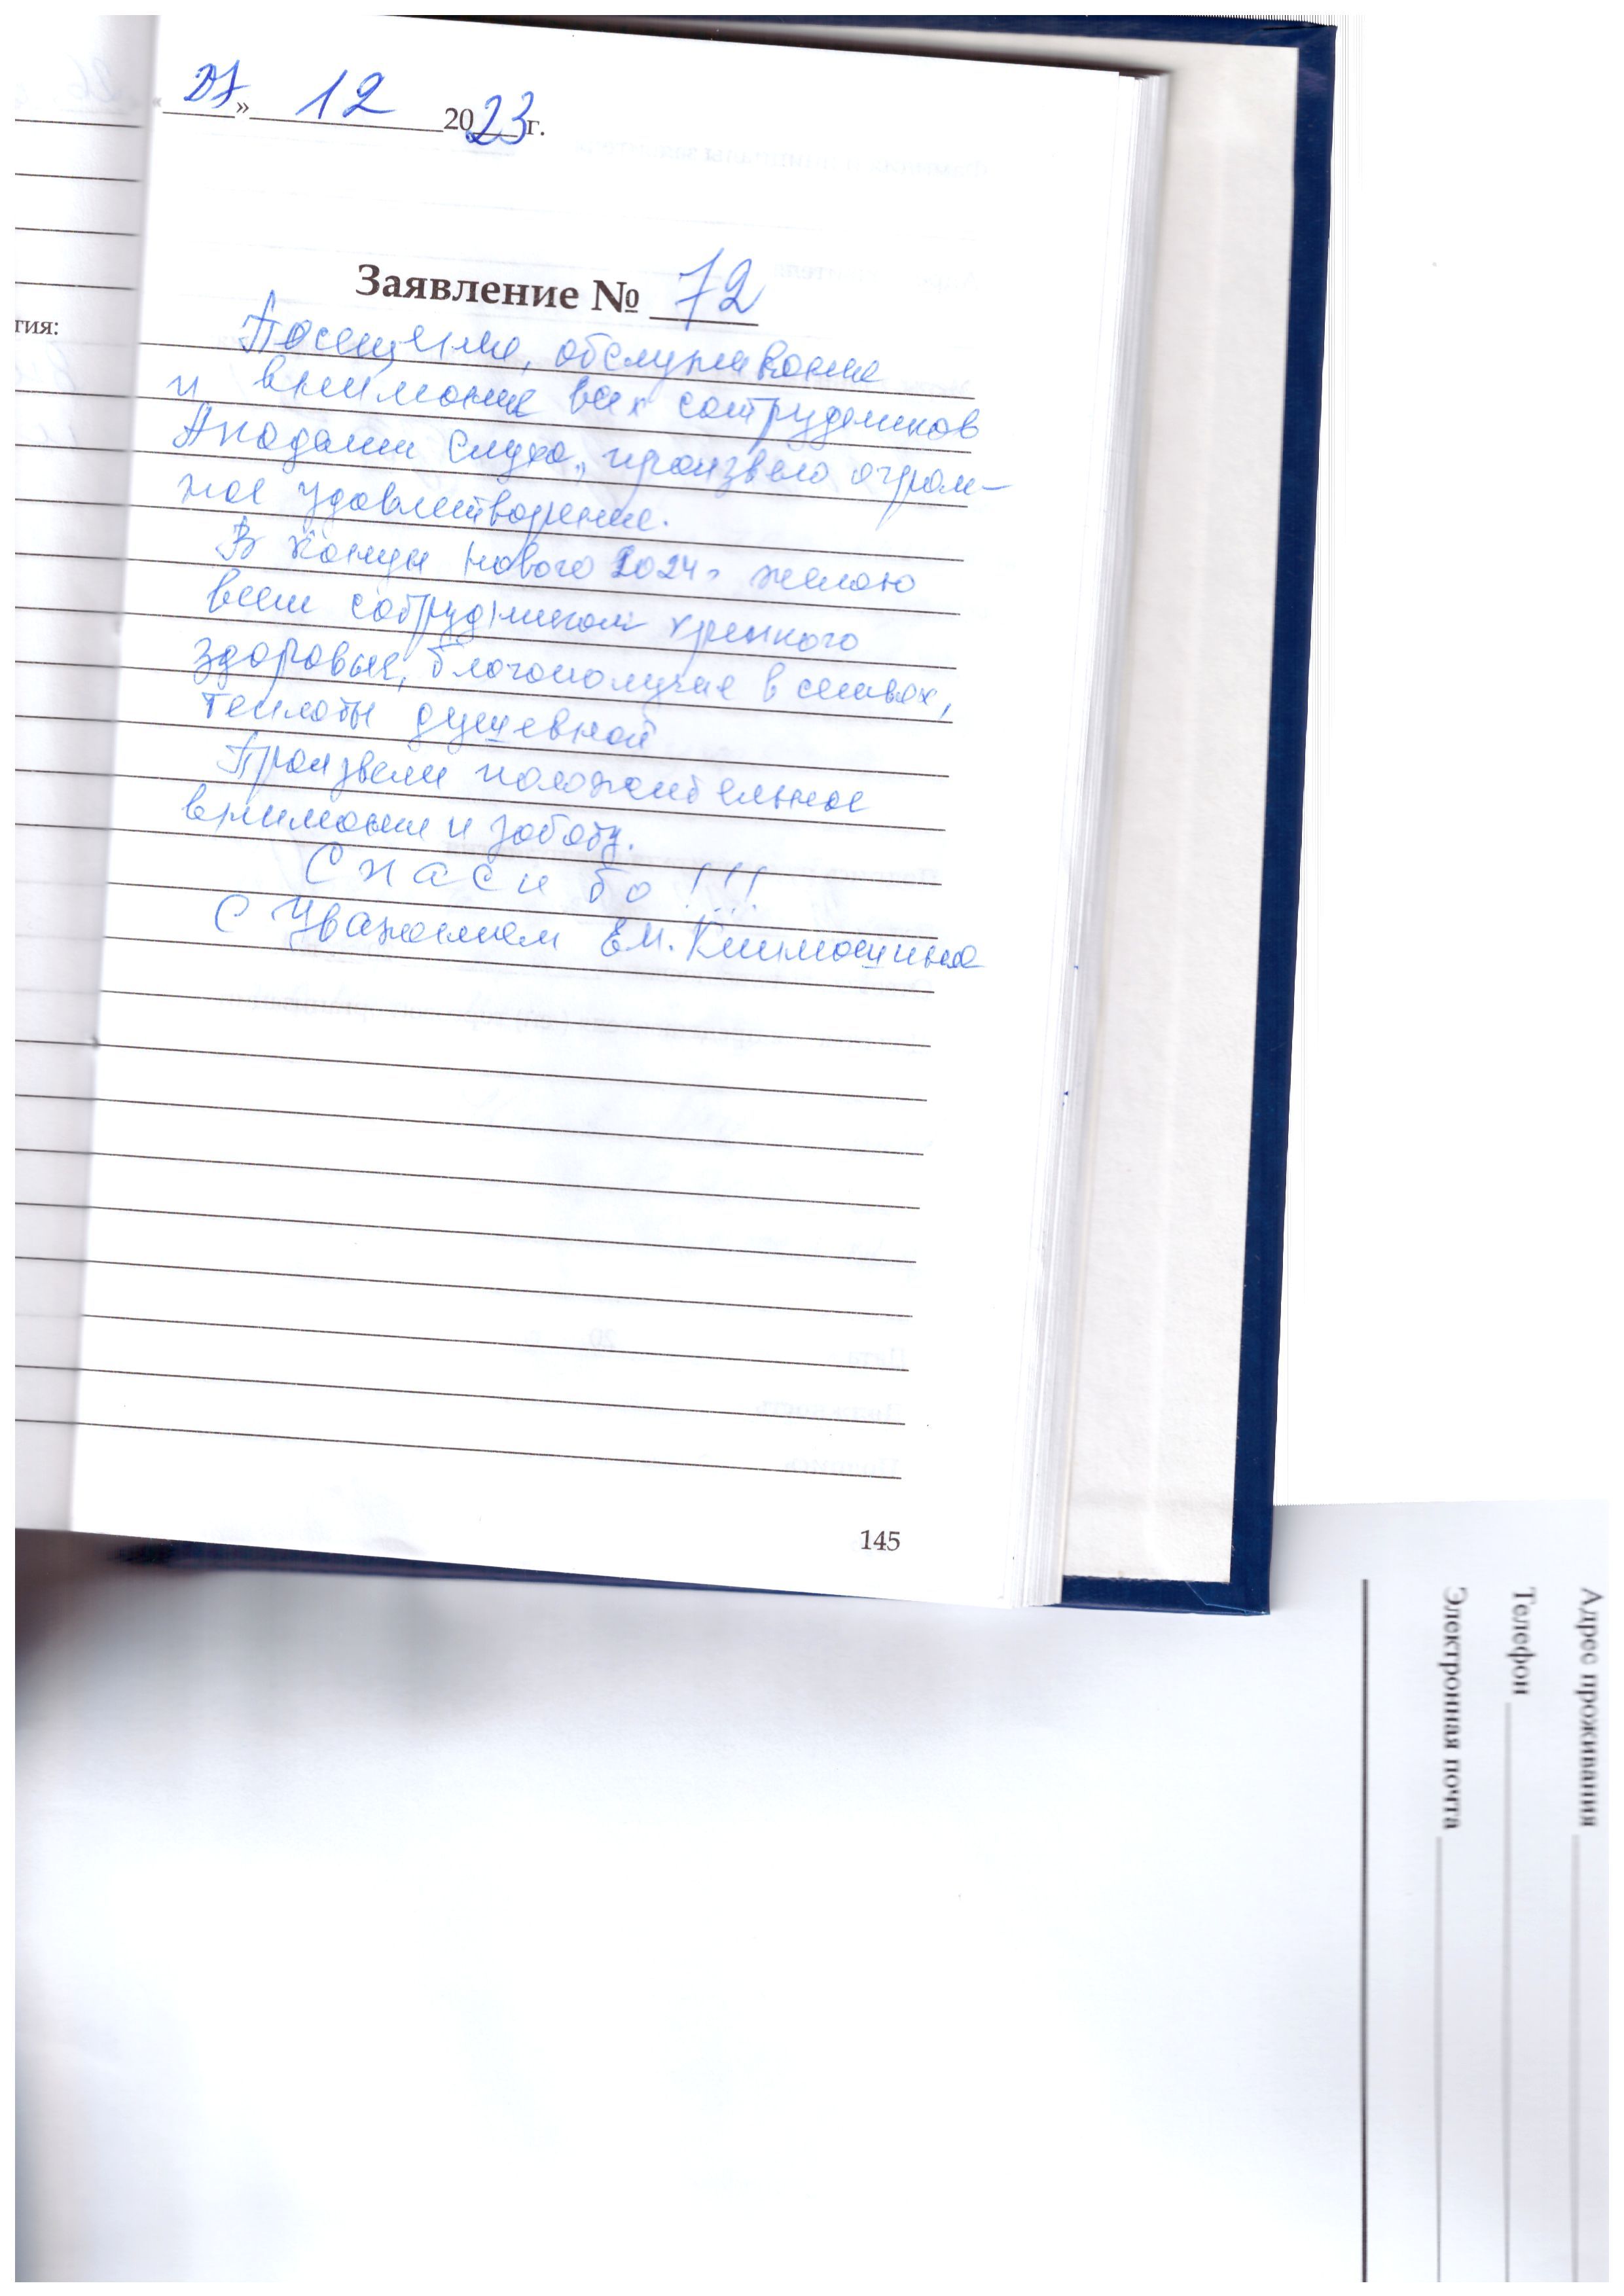 «27» 12 2023 г.
Заявление № 72
гия:
Посещение, обслуживание
и внимание всех сотрудников
Академии Слуха, произвело огром-
ное удовлетворение.
В канун Нового 2024г желаю
всем сотрудникам крепкого
здоровье, благополучие в семьях,
теплоты душевной
Произвели положительное
внимание и заботу.
Спасибо!!!
С Уважением Ем.
145
Адрес проживания
Телефон
Электронная почта